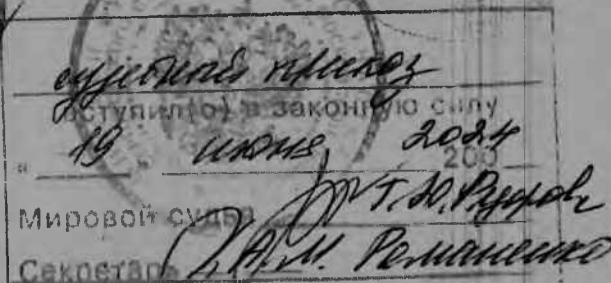 судебный приказ
вступил(о) в законную силу
" 19 " июня 2024 200
Мировой судья Т.Ю.
Секретарь А.М. Романенко